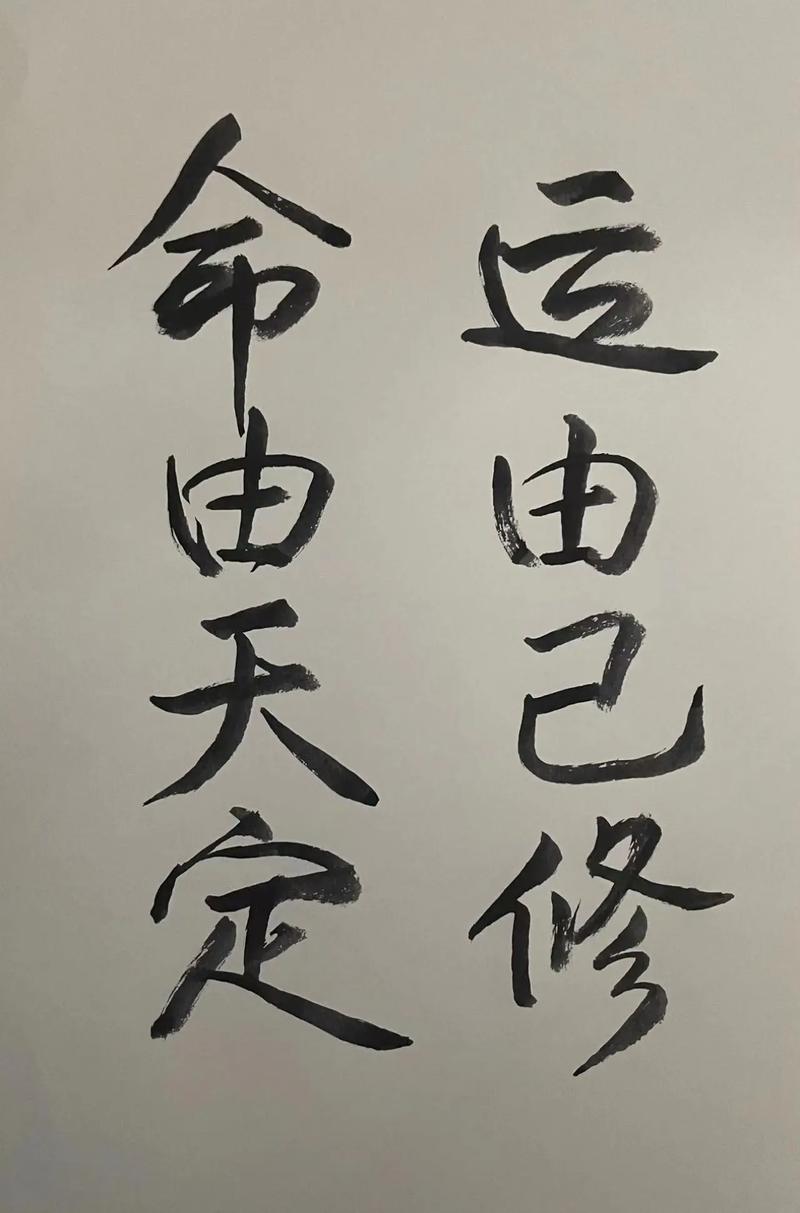 运由己修
命由天定